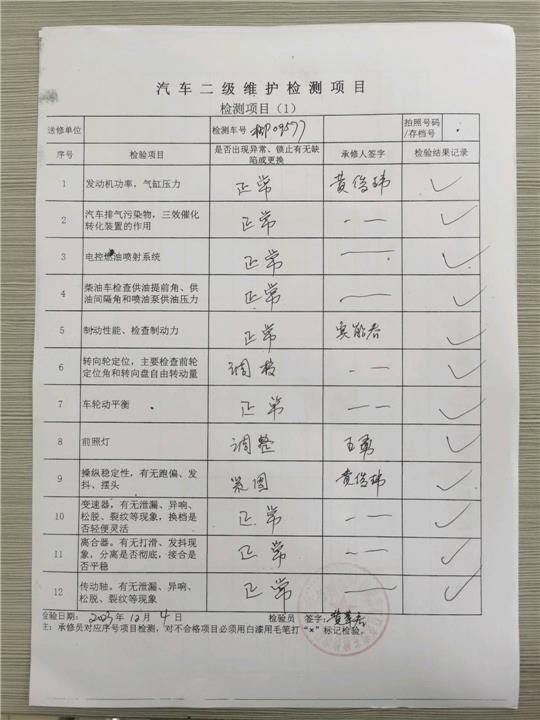 汽车二级维护检测项目
检测项目（1）
送修单位 检测车号 09577 拍照号码/存档号
序号 检验项目 是否出现异常、锁止有无缺陷或更换 承修人签字 检验结果记录
1 发动机功率，气缸压力 正常 黄俊玮 ✓
2 汽车排气污染物，三效催化转化装置的作用 正常 — — ✓
3 电控燃油喷射系统 正常 — — ✓
4 柴油车检查供油提前角、供油间隔角和喷油泵供油压力 正常 — — ✓
5 制动性能、检查制动力 正常 ✓
6 转向轮定位，主要检查前轮定位角和转向盘自由转动量 调校 — — ✓
7 车轮动平衡 正常 — — ✓
8 前照灯 调整 王勇 ✓
9 操纵稳定性，有无跑偏、发抖、摆头 紧固 黄俊玮 ✓
10 变速器，有无泄漏、异响、松脱、裂纹等现象，换档是否轻便灵活 正常 — — ✓
11 离合器。有无打滑、发抖现象，分离是否彻底，接合是否平稳 正常 — — ✓
12 传动轴。有无泄漏、异响、松脱、裂纹等现象 正常 — — ✓
检验日期： 2023年12月4日 检验员 签字：
主：承修员对应序号项目检测，对不合格项目必须用白漆用毛笔打“×”标记检验。